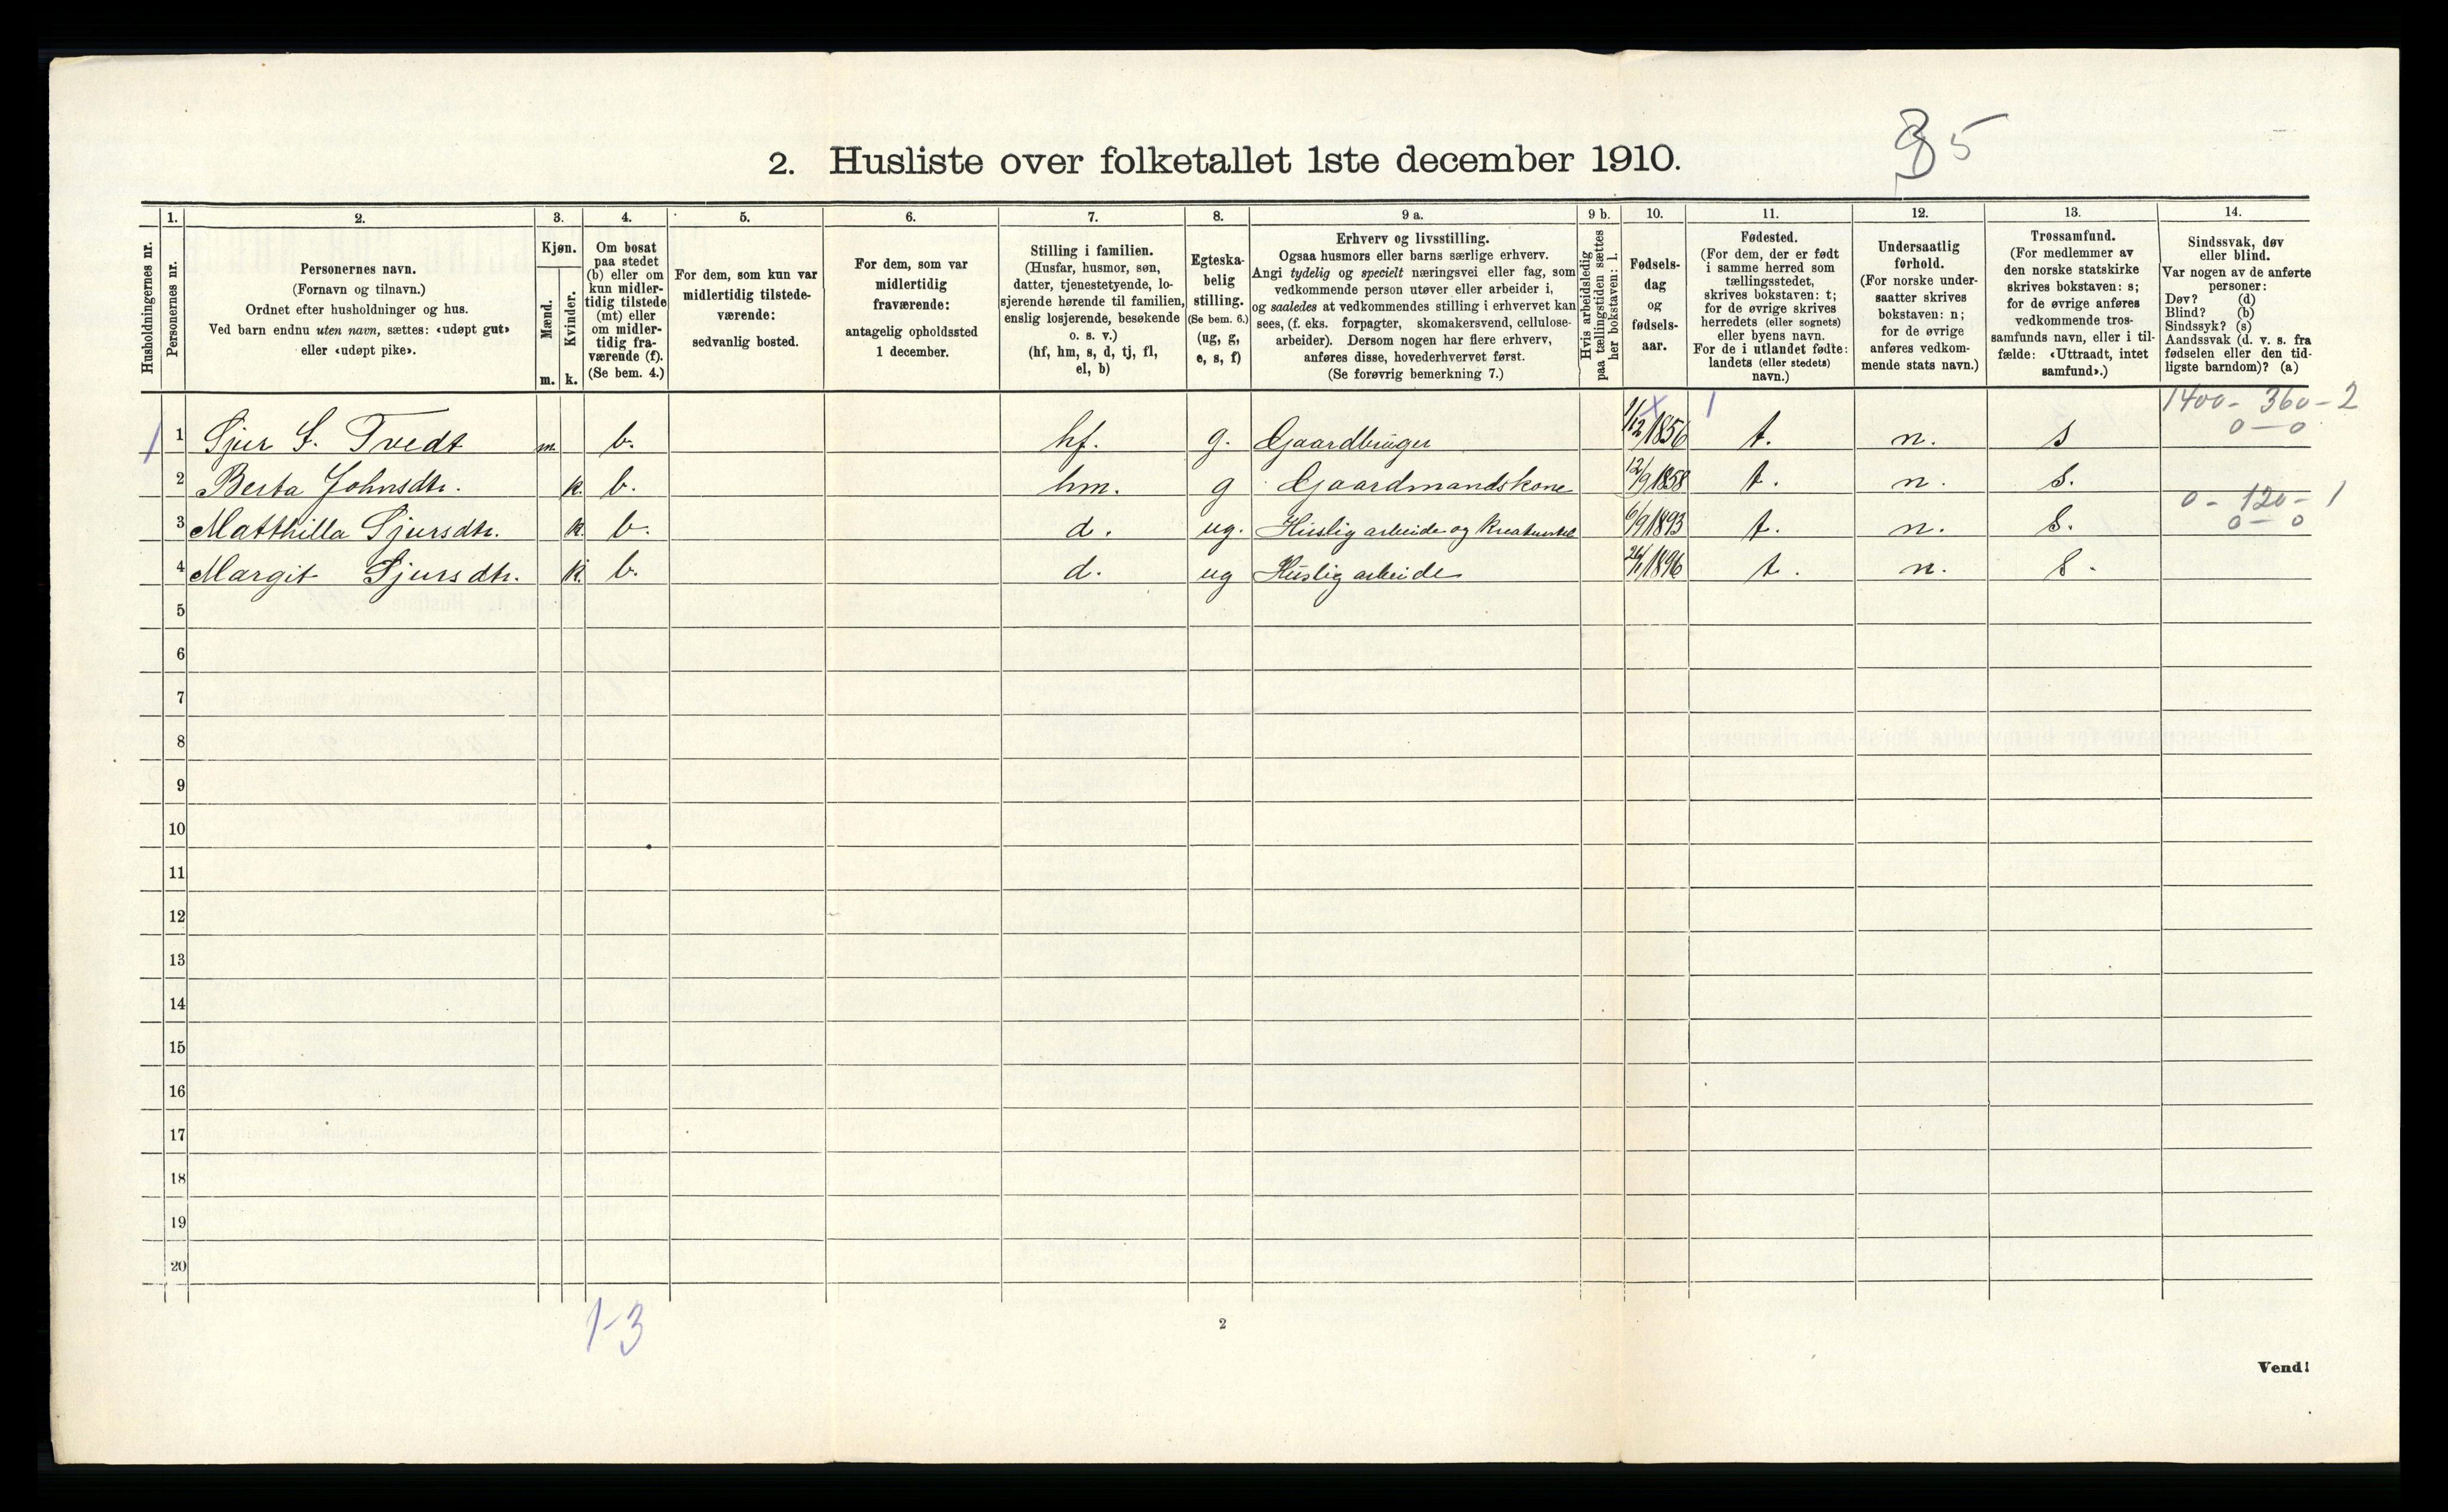 85
2. Husliste over folketallet 1ste december 1910.
Husholdningernes nr.
1.
Personernes nr.
2.
Personernes navn.
(Fornavn og tilnavn.)
Ordnet efter husholdninger og hus.
Ved barn endnu uten navn, sættes: «udøpt gut»
eller «udøpt pike».
3.
Kjøn.
Mænd.
Kvinder.
m. k.
4.
Om bosat
paa stedet
(b) eller om
kun midler-
tidig tilstede
(mt) eller
om midler-
tidig fra-
værende (f).
(Se bem. 4.)
5.
For dem, som kun var
midlertidig tilstede-
værende:
sedvanlig bosted.
6.
For dem, som var
midlertidig
fraværende:
antagelig opholdssted
1 december.
7.
Stilling i familien.
(Husfar, husmor, søn,
datter, tjenestetyende, lo-
sjerende hørende til familien,
enslig losjerende, besøkende
o. s. v.)
(hf, hm, s, d, tj, fl,
el, b)
8.
Egteska-
belig
stilling.
(Se bem. 6.)
(ug, g,
e, s, f)
9 a.
Erhverv og livsstilling.
Ogsaa husmors eller barns særlige erhverv.
Angi tydelig og specielt næringsvei eller fag, som
vedkommende person utøver eller arbeider i,
og saaledes at vedkommendes stilling i erhvervet kan
sees, (f. eks. forpagter, skomakersvend, cellulose-
arbeider). Dersom nogen har flere erhverv,
anføres disse, hovederhvervet først.
(Se forøvrig bemerkning 7.)
9 b.
Hvis arbeidsledig
paa tællingstiden sættes
her bokstaven: l.
10.
Fødsels-
dag
og
fødsels-
aar.
11.
Fødested.
(For dem, der er født
i samme herred som
tællingsstedet,
skrives bokstaven: t;
for de øvrige skrives
herredets (eller sognets)
eller byens navn.
For de i utlandet fødte:
landets (eller stedets)
navn.)
12.
Undersaatlig
forhold.
(For norske under-
saatter skrives
bokstaven: n;
for de øvrige
anføres vedkom-
mende stats navn.)
13.
Trossamfund.
(For medlemmer av
den norske statskirke
skrives bokstaven: s;
for de øvrige anføres
vedkommende tros-
samfunds navn, eller i til-
fælde: «Uttraadt, intet
samfund».)
14.
Sindssvak, døv
eller blind.
Var nogen av de anførte
personer:
Døv? (d)
Blind? (b)
Sindssyk? (s)
Aandssvak (d. v. s. fra
fødselen eller den tid-
ligste barndom)? (a)
x 1 1400 - 360 - 2
1 1 Sjur S. Tvedt m. b. hf. g. Gaardbruger 1/12 1856 t. n. s 0 — 0
2 Berta Johnsdtr. k. b. hm. g Gaardmandskone 12/9 1858 t. n. s.
0 - 120 - 1
3 Matthilla Sjursdtr. k. b. d. ug. Huslig arbeide og kreaturstel 6/9 1893 t. n. s. 0 — 0
4 Margit Sjursdtr. k. b. d. ug Huslig arbeide 26/1 1896 t. n. s.
5
6
7
8
9
10
11
12
13
14
15
16
17
18
19
20
1-3
2
Vend!